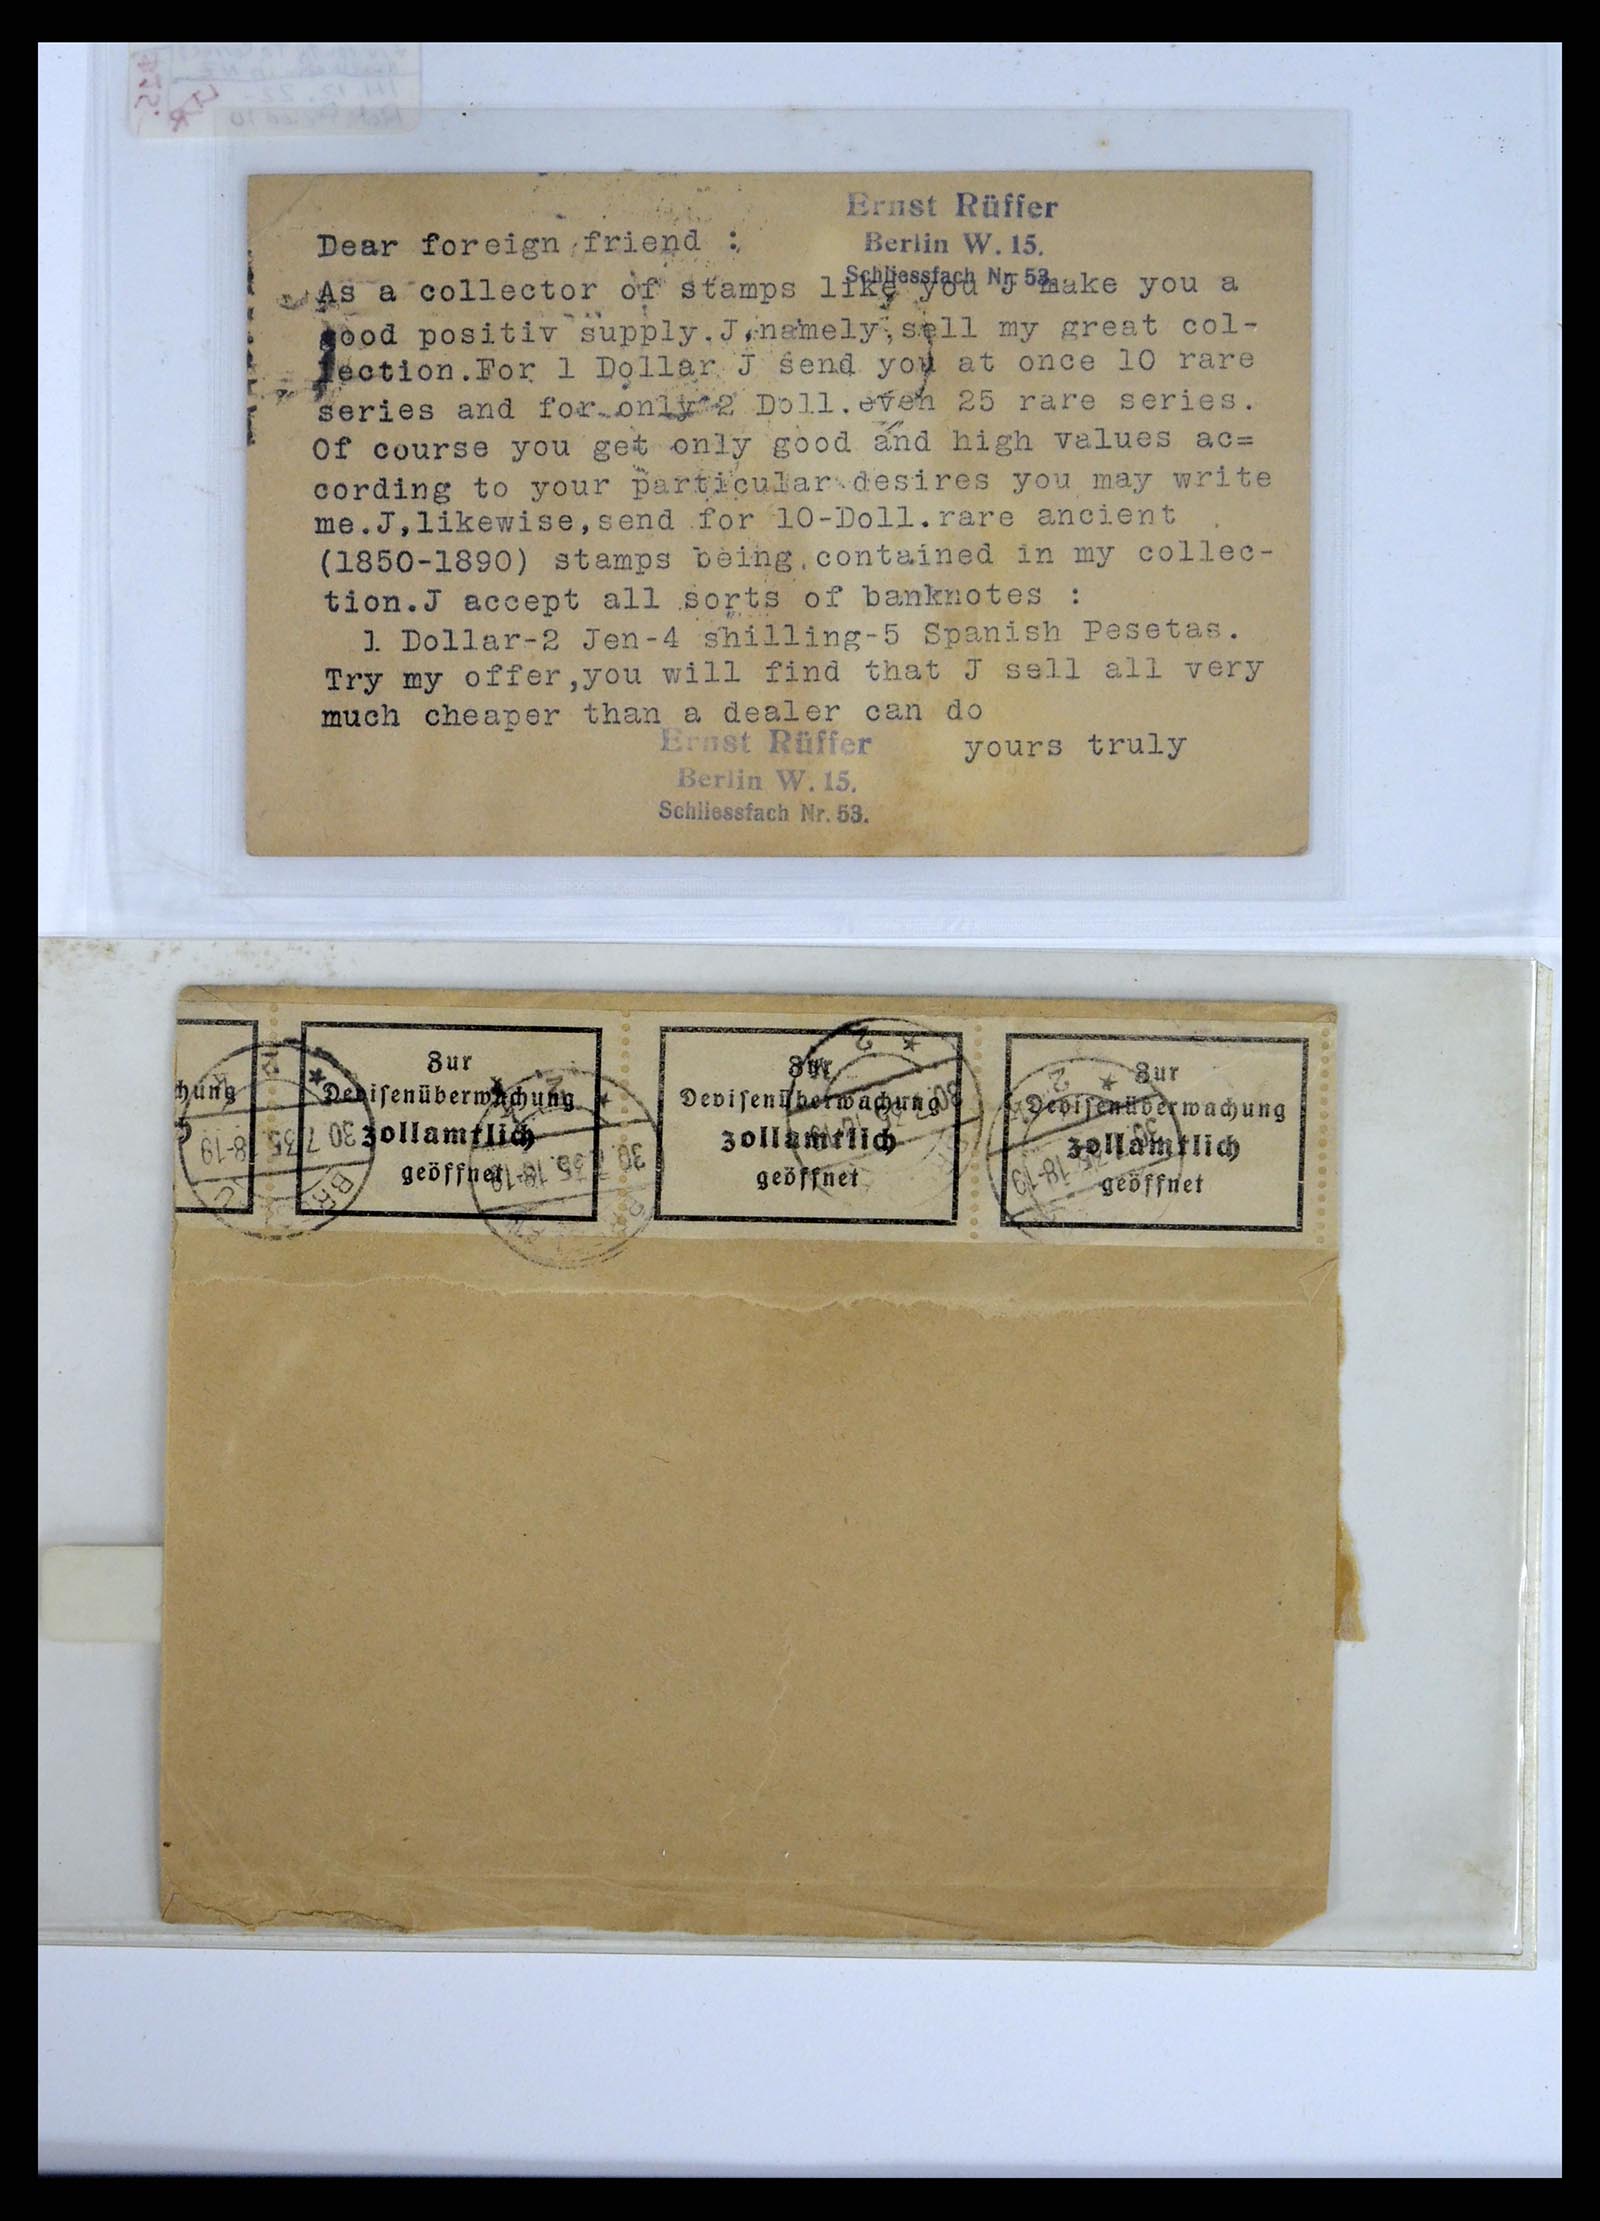 Ernst Rüffer
Berlin W. 15.
Schliessfach Nr. 53.
Dear foreign friend :
As a collector of stamps like you J make you a
good positiv supply.J,namely,sell my great col-
lection.For 1 Dollar J send you at once 10 rare
series and for only 2 Doll.even 25 rare series.
Of course you get only good and high values ac=
cording to your particular desires you may write
me.J,likewise,send for 10-Doll.rare ancient
(1850-1890) stamps being contained in my collec-
tion.J accept all sorts of banknotes :
1 Dollar-2 Jen-4 shilling-5 Spanish Pesetas.
Try my offer,you will find that J sell all very
much cheaper than a dealer can do
yours truly
Ernst Rüffer
Berlin W. 15.
Schliessfach Nr. 53.
hung
Zur
Devisenüberwachung
zollamtlich
geöffnet
Zur
Devisenüberwachung
zollamtlich
geöffnet
Zur
Devisenüberwachung
zollamtlich
geöffnet
30.7.35.18-19
30.7.35.18-19
18-19